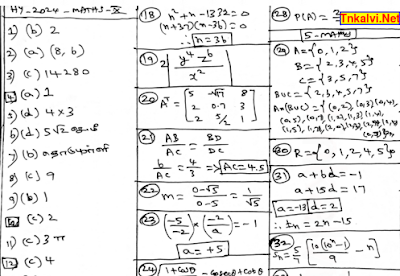 HY-2024-MATHS-X
1) (b) 2
2) (a) (8, 6)
3) (c) 14280
4) (a) 1
5) (d) 4×3
6) (d) 5√2
7) (b)
8) (c) 9
9) (b) 1
10) (c) 2
11) (c) 3π
12) (c) 4
18) n²+n-1332=0
(n+37)(n-36)=0
∴ n=36
19) 2 | y⁴z⁶ / x² |
20) Aᵀ = [5 √17 8
2 0.7 3
2 5/2 1]
21) AB/AC = BD/DC
6/AC = 4/3 => AC=4.5
22) m = 0-√5 / 0-5 = 1/√5
23) (-5/-2) × (-2/a) = -1
a = +5
24) 1+cosθ - cosecθ+cotθ
28) P(A) = 3
Tnkalvi.Net
5-MARKS
29) A={0,1,2}
B={2,3,4,5}
C={3,5,7}
BUC={2,3,4,5,7}
A×(BUC)={(0,2),(0,3),(0,4),
(0,5),(0,7),(1,2),(1,3),(1,4),
(1,5),(1,7),(2,2),(2,3),(2,4),
(2,5),(2,7)}
30) R={0,1,2,4,5}
31) a+6d=-1
a+15d=17
a=-13 d=2
∴ tn=2n-15
32) Sn=5/9 [10(10ⁿ-1)/9 - n]